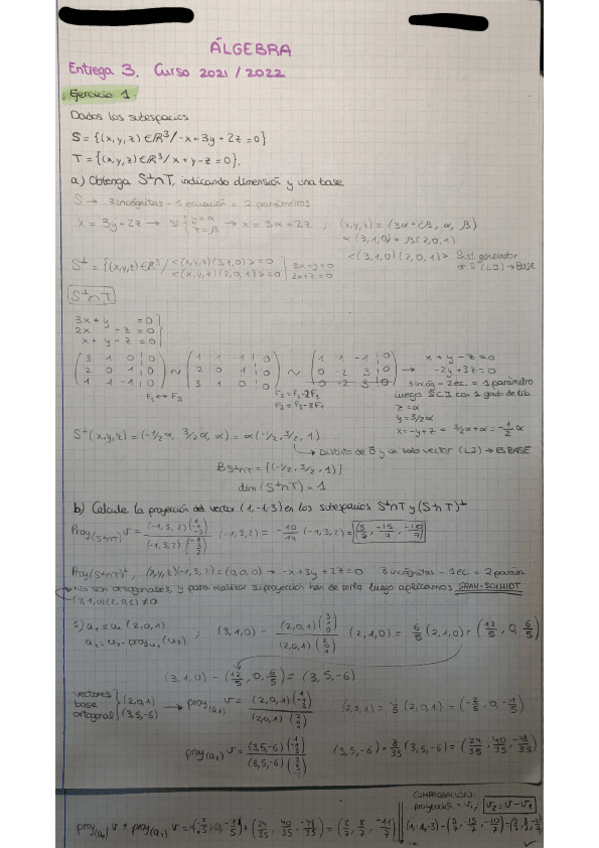 ÁLGEBRA
Entrega 3. Curso 2021/2022
Ejercicio 1.
Dados los subespacios
S = {(x,y,z) ∈ R³ / -x+3y+2z=0}
T = {(x,y,z) ∈ R³ / x+y-z=0}.
a) Obtenga S⊥∩T, indicando dimensión y una base
S → 3 incógnitas - 1 ecuación = 2 parámetros
x = 3y+2z → si { y=α z=β → x = 3α+2z ; (x,y,z) = (3α+2β, α, β)
α(3,1,0) + β(2,0,1)
<(3,1,0)(2,0,1)> Sist. generador
de S (LI) → Base
S⊥ = {(x,y,z) ∈ R³ / <(x,y,z)(3,1,0)>=0 } 3x+y=0
<(x,y,z)(2,0,1)>=0 } 2x+z=0
S⊥∩T
3x+y =0
2x -z=0
x+y-z=0
(3 1 0 | 0) ~ (1 1 -1 | 0) ~ (1 1 -1 | 0) x+y-z=0
(2 0 1 | 0) (2 0 1 | 0) (0 -2 3 | 0) → -2y+3z=0
(1 1 -1 | 0) (3 1 0 | 0) (0 -2 3 | 0) 3 incóg - 2 ec. = 1 parámetro
F₁↔F₃ F₂=F₂-2F₁ luego SCI con 1 grado de lib.
F₃=F₃-3F₁ z=α
y=3/2α
x=-y+z = 3/2α+α = -1/2 α
S⊥(x,y,z) = (-1/2α, 3/2α, α) = α(-1/2, 3/2, 1)
→ Distinto de 0 y un solo vector (LI) → ES BASE
B S⊥∩T = {(-1/2, 3/2, 1)}
dim (S⊥∩T) = 1
b) Calcule la proyección del vector (1,-1,3) en los subespacios S⊥∩T y (S⊥∩T)⊥
Proy(S⊥∩T) v = (-1,3,2)(1 -1 -3) / (-1,3,2)(-1 3 2) (-1,3,2) = -10/14 (-1,3,2) = (5/7, -15/7, -10/7)
Proy(S⊥∩T)⊥, (x,y,z)(-1,3,2)=(0,0,0) → -x+3y+2z=0 3 incógnitas - 1 ec. = 2 parám
No son ortogonales, y para realizar su proyección han de serlo, luego aplicamos GRAM-SCHMIDT
(3,1,0)(2,0,1) ≠0
1) a₁=u₁ (2,0,1)
a₂=u₂-proy u₁(u₂) ; (3,1,0) - (2,0,1)(3 1 0) / (2,0,1)(2 0 1) (2,1,0) = 6/5 (2,0,1) = (12/5, 0, 6/5)
(3,1,0) - (12/5, 0, 6/5) = (3,5,-6)
vectores base ortogonal } (2,0,1) (3,5,-6) → proy(a₁) v = (2,0,1)(1 -1 -3) / (2,0,1)(2 0 1) (2,0,1) = -1/5 (2,0,1) = (-2/5, 0, -1/5)
proy(a₂) v = (3,5,-6)(1 -1 -3) / (3,5,-6)(3 5 -6) (3,5,-6) = 8/35 (3,5,-6) = (24/35, 40/35, -48/35)
COMPROBACIÓN:
proyección = v₁; v₂=v-v₁
proy(a₁) v + proy(a₂) v = (-2/5, 0, -1/5) + (24/35, 40/35, -48/35) = (2/7, 8/7, -11/7)
(1,-1,-3)-(5/7, -15/7, -10/7)=(2/7, 8/7, -11/7)